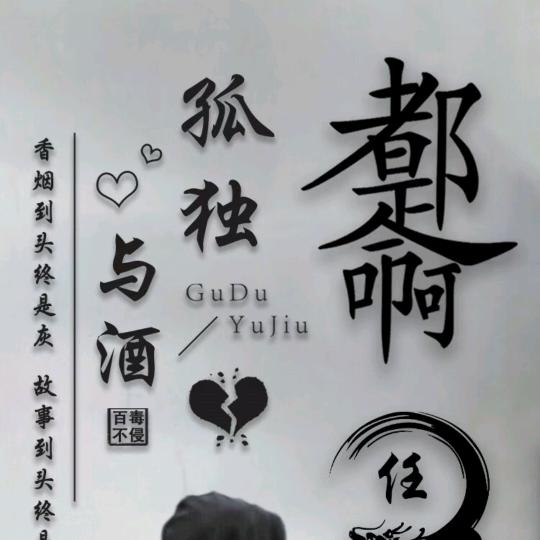 都是啊
孤独
与酒
GuDu
YuJiu
百毒
不侵
香烟到头终是灰 故事到头终是
任